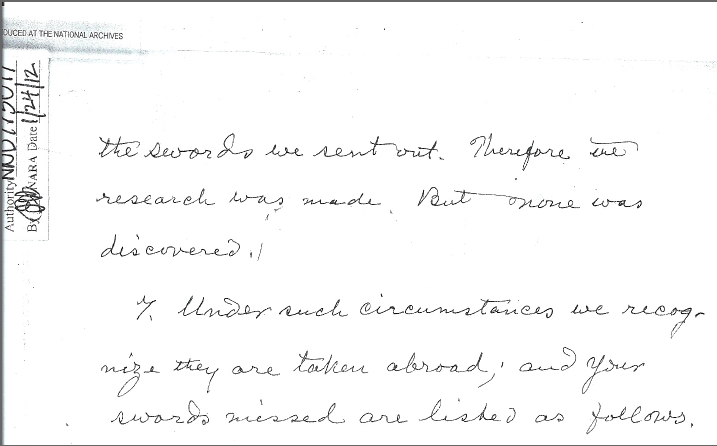 DUCED AT THE NATIONAL ARCHIVES
Authority NND 775017
By NARA Date 1/24/12
the swords we sent out. Therefore we
research was made. But none was
discovered.
7. Under such circumstances we recog-
nize they are taken abroad; and your
swords missed are listed as follows.